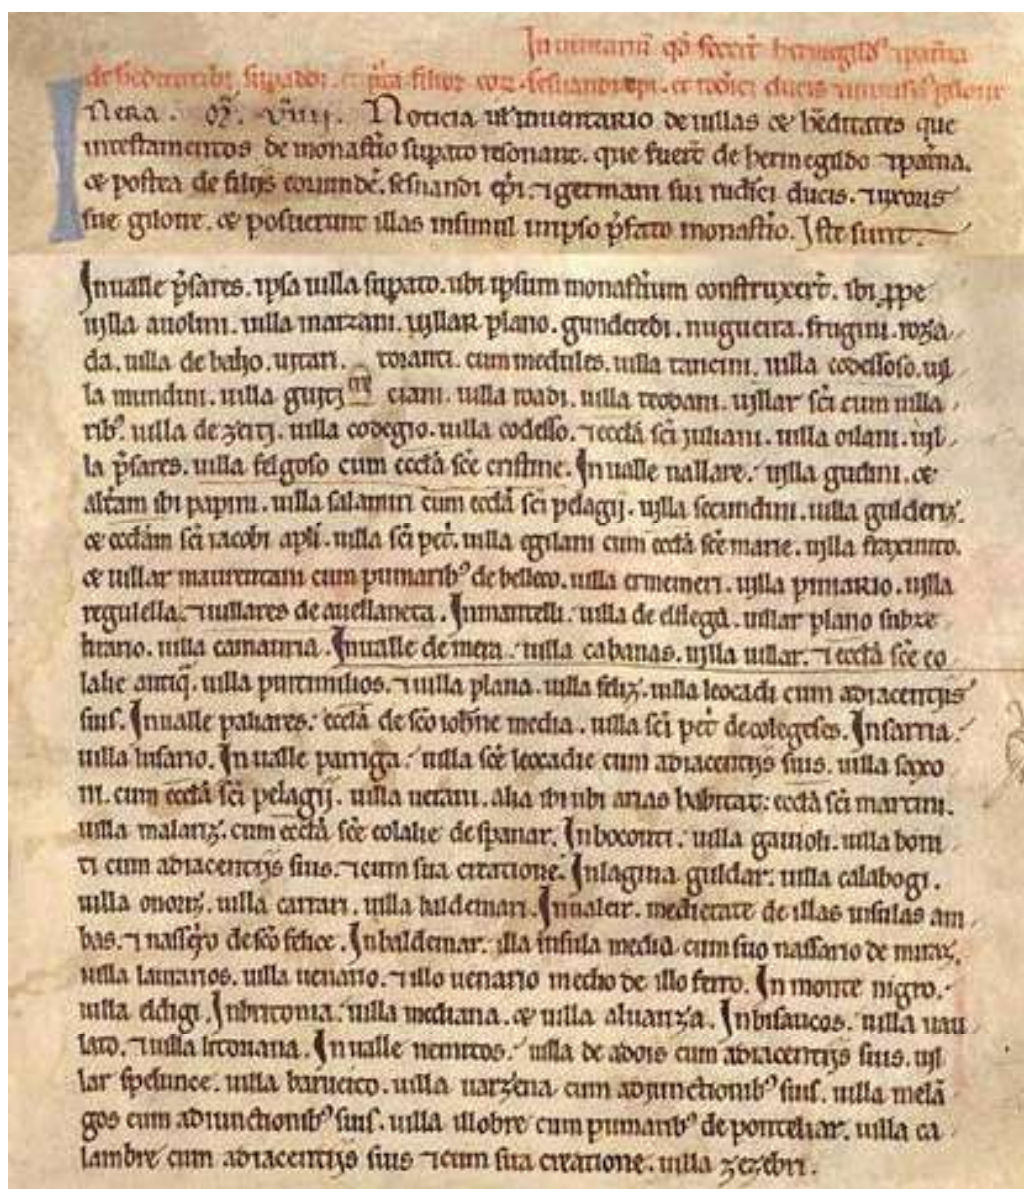 Inuentariũ qđ fecer̃t hermegildꝰ ⁊ pat̃na
de hereditatibꝫ suprado. et filios eoꝝ. sesnandi epi. et rodici ducis ⁊ uxoris gilone
IN ERA . Noticia ul̃ inuentario de uillas & h̃editates que
intestamentos de monast̃io supato resonant. que fuer̃t de hermegildo ⁊ pat̃na.
& postea de filijs eorumdẽ. sesnandi ep̃i. ⁊ germani sui rudisci ducis. ⁊ uxoris
sue gilone. & posuerunt illas insimul inipso p̃fato monast̃io. Iste sunt.
Inualle p̃sares. ipsa uilla supato. ubi ipsum monast̃ium construxer̃t. ibi ꝓpe
uilla auolini. uilla marzani. uillar plano. gunderedi. nugueira. frugini. roza
da. uilla de baho. uitari. toranti. cum medules. uilla tancini. uilla codessoso. uil
la mundini. uilla ciani. uilla roadi. uilla teodani. uillar sc̃i cum uilla
ribꝰ. uilla de uilla codegio. uilla codesso. ⁊ eccl̃a sc̃i juliani. uilla oilani. uil
la p̃sares. uilla felgoso cum eccl̃a sc̃e cristine. Inualle nallare. uilla gudini. &
alt̃am ibi papini. uilla salamiri cum eccl̃a sc̃i pelagij. uilla secundini. uilla gulderiz.
& eccl̃am sc̃i iacobi apl̃i. uilla sc̃i pet̃. uilla egilani cum eccl̃a sc̃e marie. uilla fraxineto.
& uillar maurentani cum pumaribꝰ de belleco. uilla ermemeri. uilla pinario. uilla
regulella. ⁊ uillares de auellaneta. Inmantelli. uilla de uillar plano subze
brario. uilla camauria. Inualle de mera. uilla cabanas. uilla uillar. ⁊ eccl̃a sc̃e eo
lalie antiq̃. uilla purtimilios. ⁊ uilla plana. uilla feliz. uilla leocadi cum adiacentijs
suis. Inualle paliares. eccl̃a de sc̃o ioh̃ne media. uilla sc̃i pet̃ de colegeses. Insarria.
uilla lusario. Inualle parriga. uilla sc̃e leocadie cum adiacentijs suis. uilla saxo
ni. cum eccl̃a sc̃i pelagij. uilla uerani. alia ibi ubi arias habitat. eccl̃a sc̃i martini.
uilla malariz. cum eccl̃a sc̃e eolalie de spanar. Inboconti. uilla gauioli. uilla boni
ti cum adiacentijs suis. ⁊ cum sua creatione. Inlagina guldar. uilla calabogi.
uilla onoriz. uilla carrari. uilla baldemari. Inualeir. medietate de illas insulas am
bas. ⁊ nassẽro de sc̃o felice. Inbaldemar. illa insula media cum suo nassario de miraz.
uilla laurarios. uilla uenario. ⁊ illo uenario medio de illo ferro. In monte nigro.
uilla eldigi. Inbritonia. uilla mediana. & uilla aluarza. Inbisaucos. uilla uau
lato. ⁊ uilla litoriana. Inualle nemitos. uilla de adois cum adiacentijs suis. uil
lar spelunce. uilla barucico. uilla uarzena cum adjunctionibꝰ suis. uilla melã
gos cum adiunctionibꝰ suis. uilla illobre cum pumaribꝰ de ponteliar. uilla ca
lambre cum adiacentijs suis ⁊ cum sua creatione. uilla zezebri.